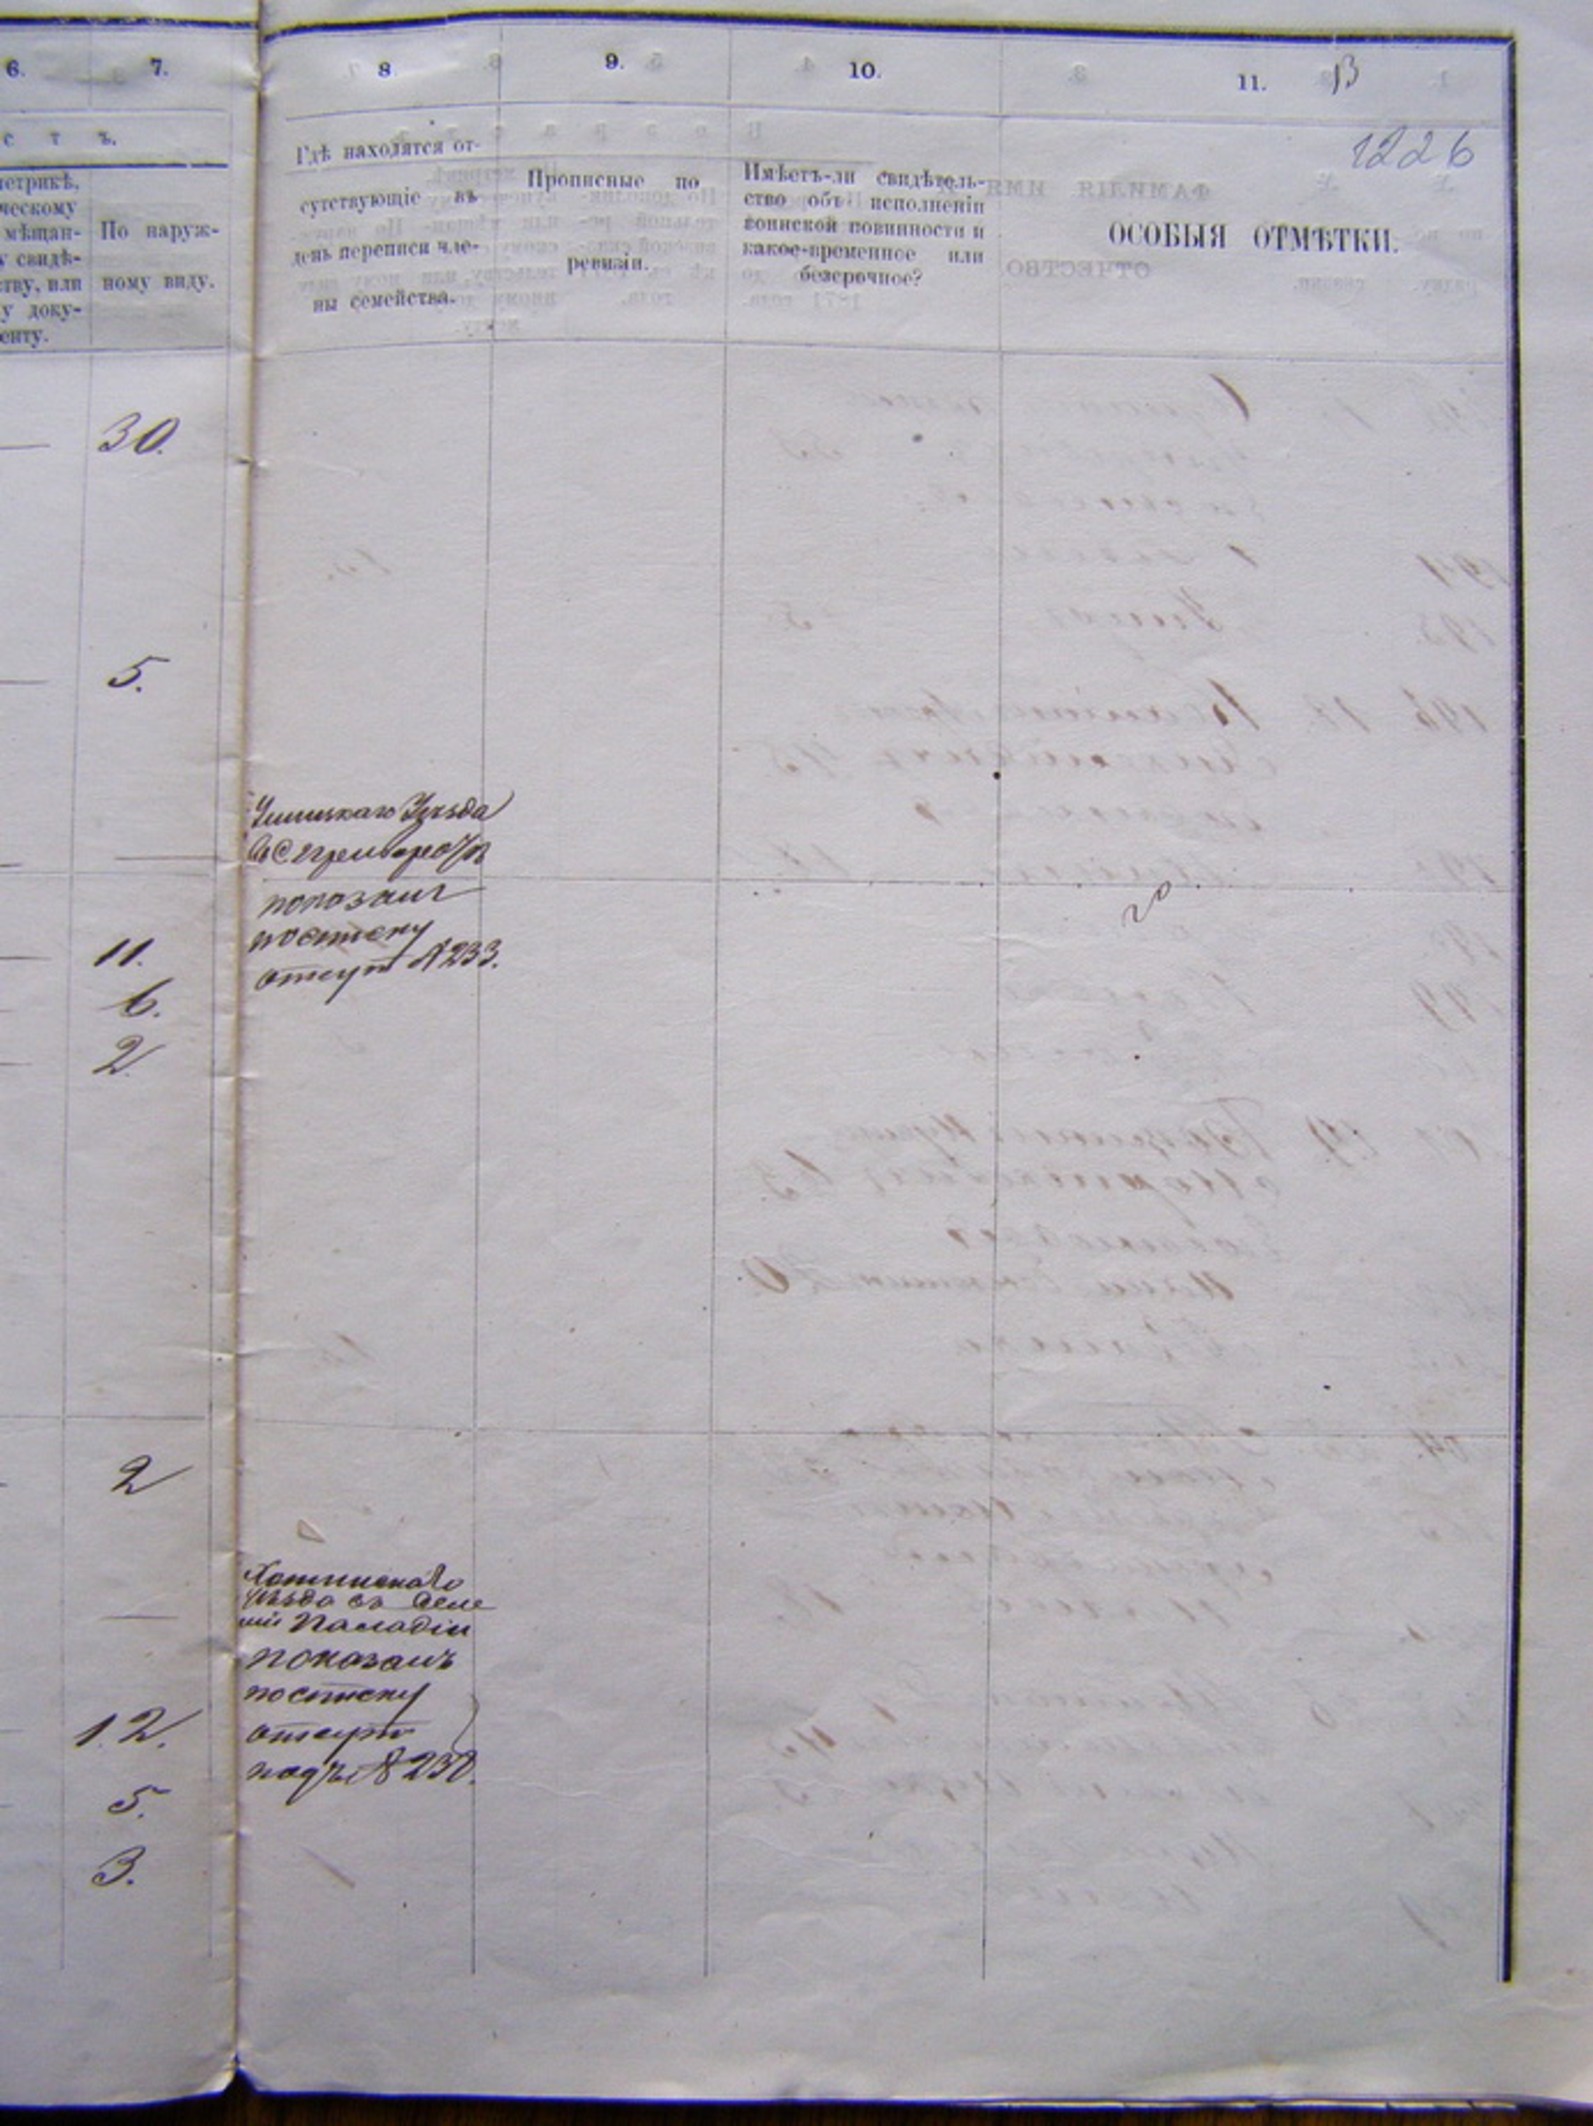 6.
7.
8
9.
10.
11.
13
1226
с т ъ.
метрикѣ,
ческому
мѣщан-
у свидѣ-
ству, или
у доку-
енту.
По наруж-
ному виду.
Гдѣ находятся от-
сутствующіе въ
день переписи чле-
ны семейства.
Прописные по
ревизіи.
Имѣетъ-ли свидѣтель-
ство объ исполненіи
воинской повинности и
какое-временное или
безсрочное?
ОСОБЫЯ ОТМѢТКИ.
30.
5.
Ушицкаго Уѣзда
показанъ
по списку
отсут №233.
11.
6.
2
2
Хотинскаго
Уѣзда въ Селе
ніи Паладіи
показанъ
по списку
отсутв
подъ №
12.
5.
3.